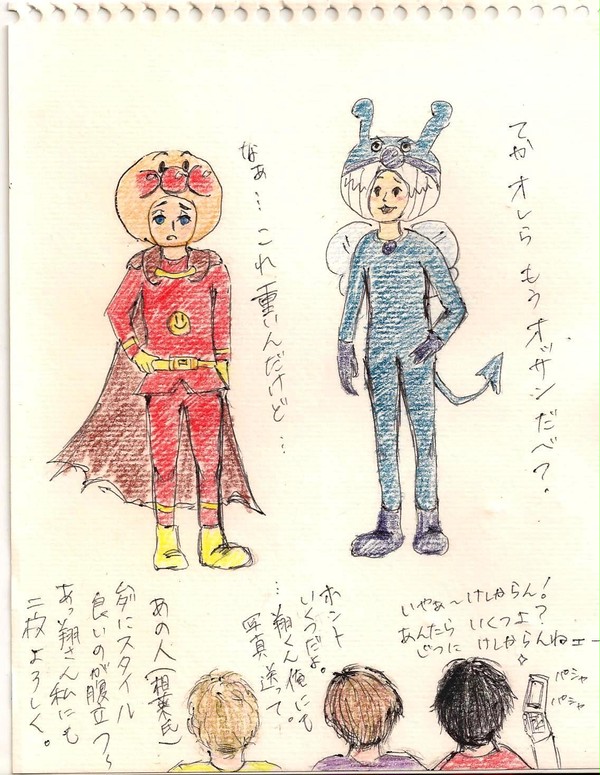 てかオレら もう オッサンだべ?。
なぁ… これ 重いんだけど…
いやぁ〜けしからん!
あんたら いくつよ?
じつに けしからんねェー
パシャ
パシャ
ホント
いくつだよ。
…翔くん俺にも
写真 送って。
あの人(相葉氏)
ムダにスタイル
良いのが腹立つ〜
あっ翔さん私にも
二枚よろしく。